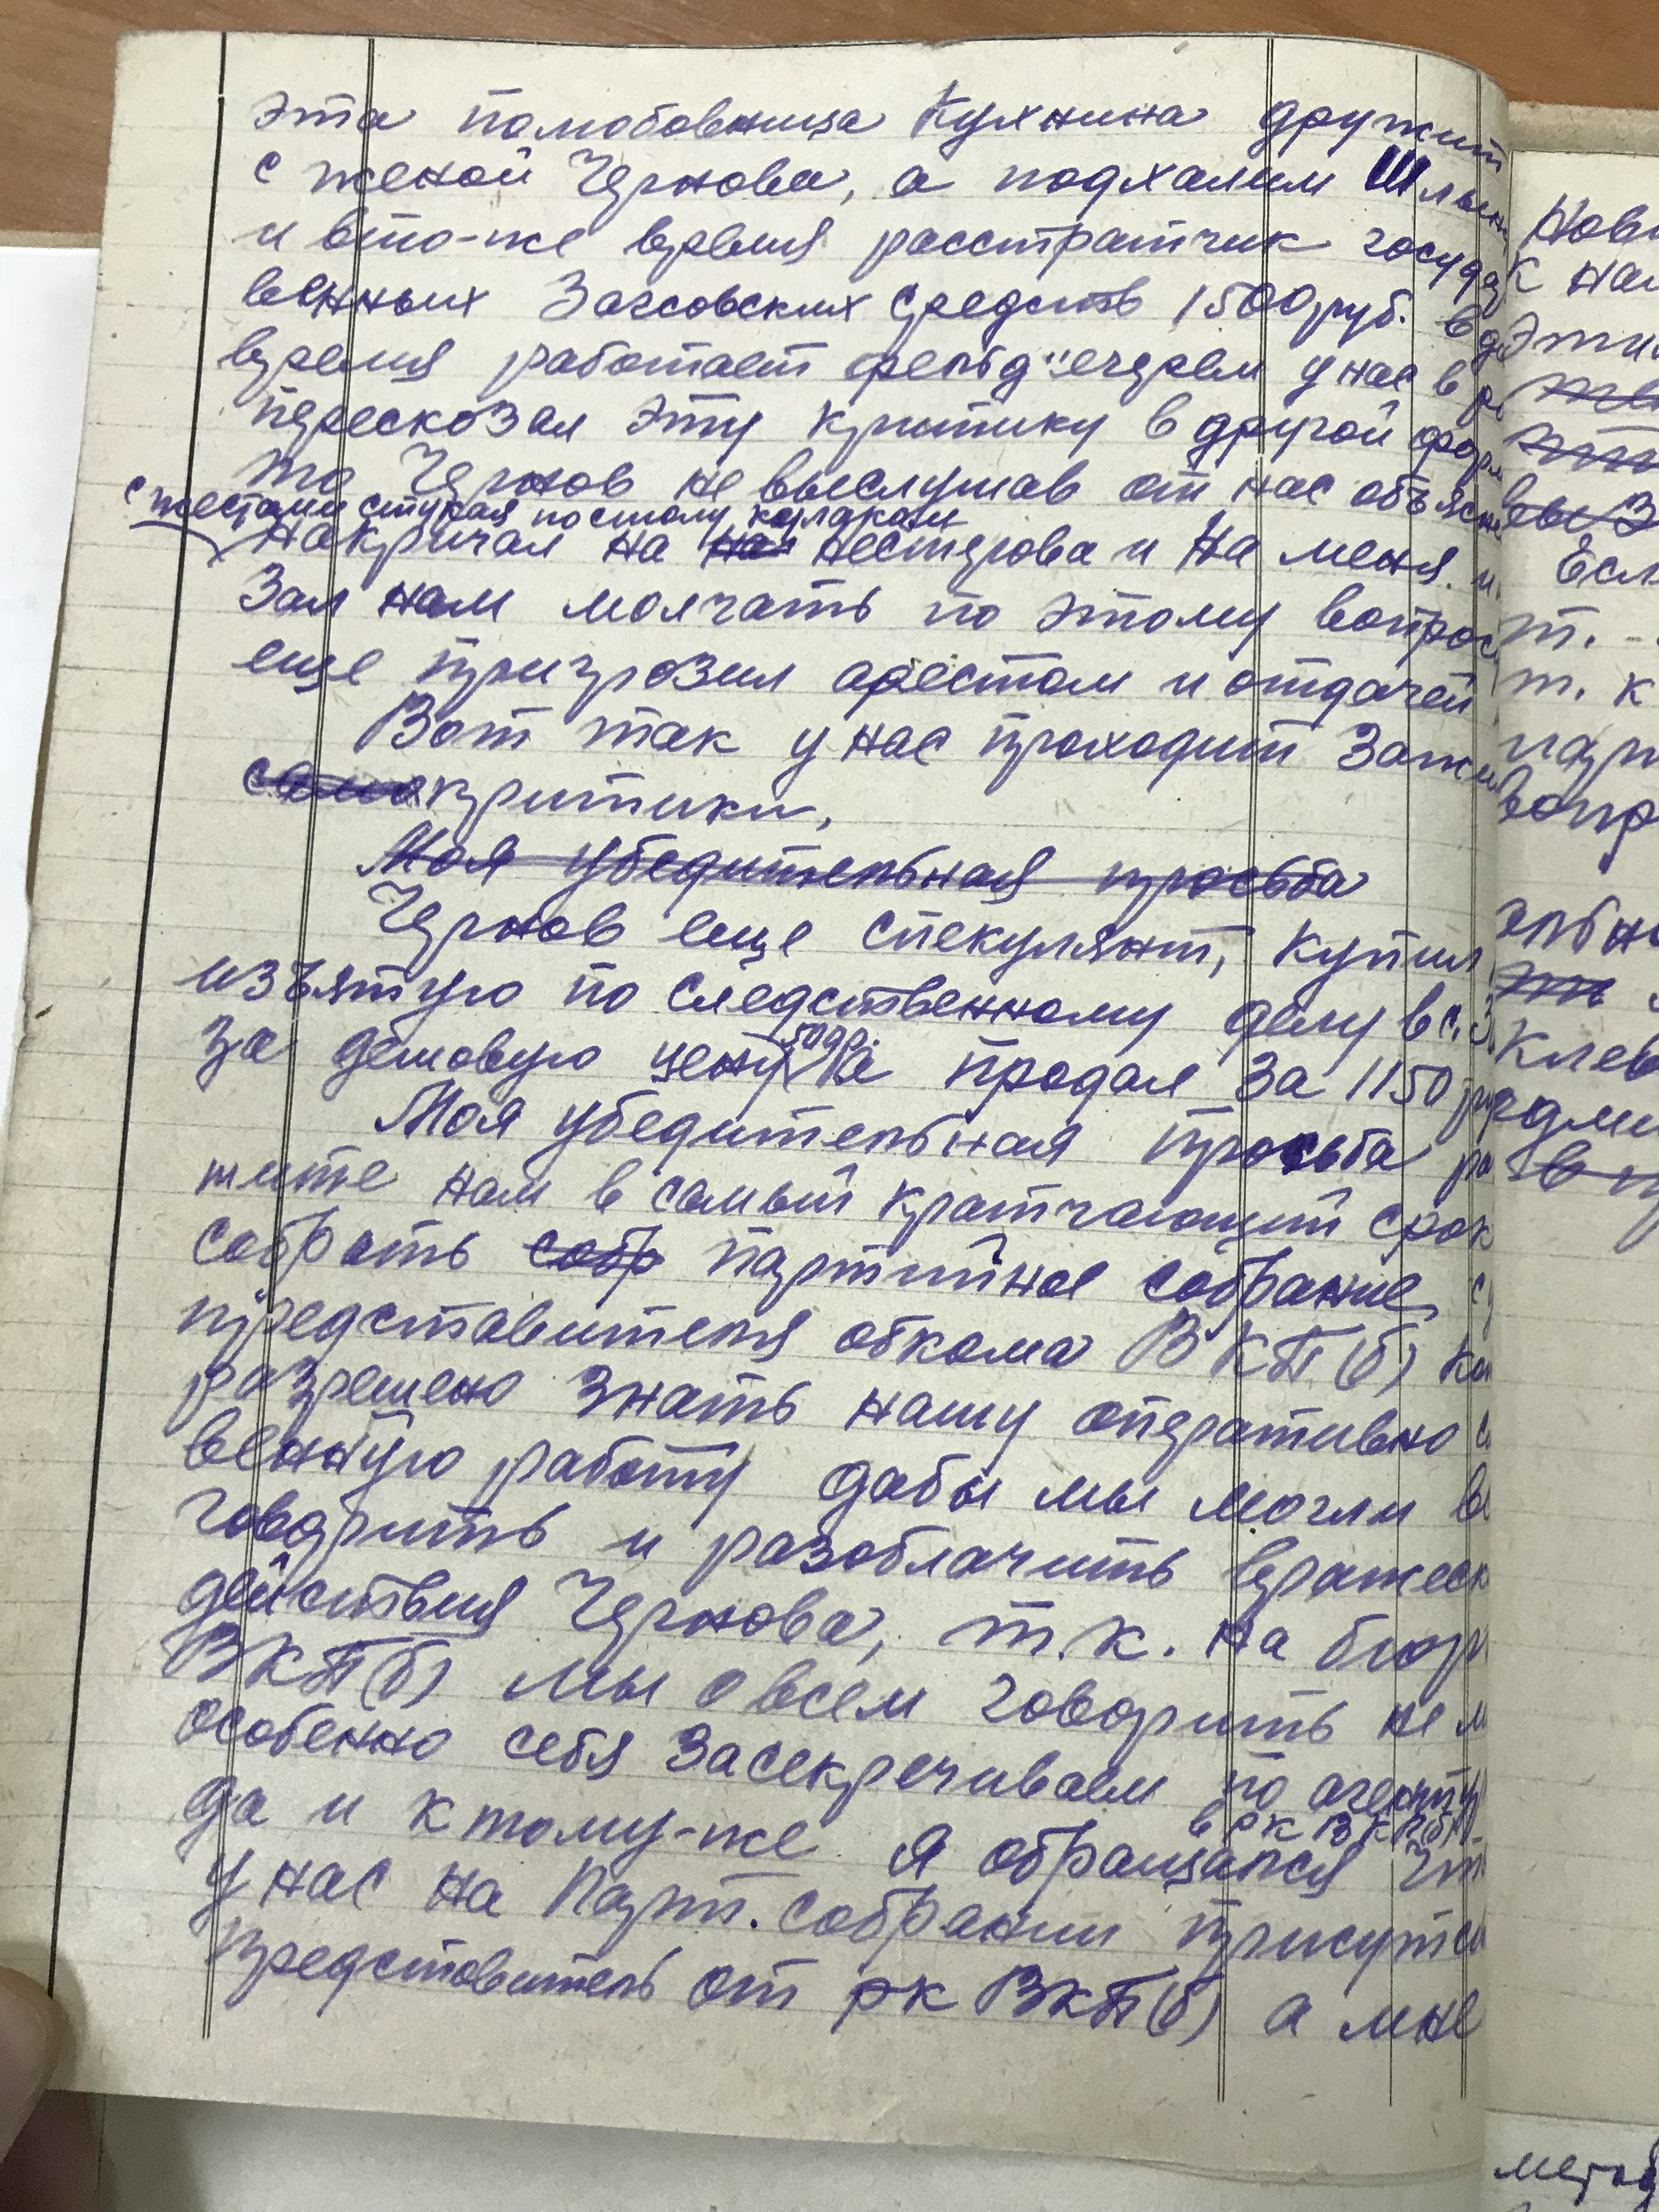 эта полюбовница Кухнина дружит
с женой Чернова, а подхалим
и вто-же время расстратчик госуда
венных Загсовских средств 1500 руб. в
время работает фельд"егерем у нас в
перескозал эту критику в другой форм
то Чернов не выслушав от нас объясне
с жестами стукая постолу кулакам
накричал на нас нестерова и на меня.
зал нам молчать по этому вопросу
еще пригрозил арестом и отдачей
Вот так у нас проходит Зажи
само критики,
Моя убедительная просьба
Чернов еще спекулянт, купил
изъятую по следственному делу в с.
за дешовую цену 50 др. а продал за 1150 ру
Моя убедительная просьба ра
шите нам в самый кратчающий срок
собрать собр партийное собрание, с
представителя обкома ВКП(б) ко
разрешено знать нашу оперативно с
венную работу дабы мы могли вы
говорить и разоблачить вражеск
действия Чернова, т.к. на бюр
ВКП(б) мы о всем говорить не м
особенно себя засекречиваем по агентур
в РК ВКП(б)
да и к тому-же я обращался Чт
у нас на Парт. собрании присутс
представитель от рк ВКП(б) а мне
Нов
к на
Эти
Есл
т. к
парт
вопр
Клев